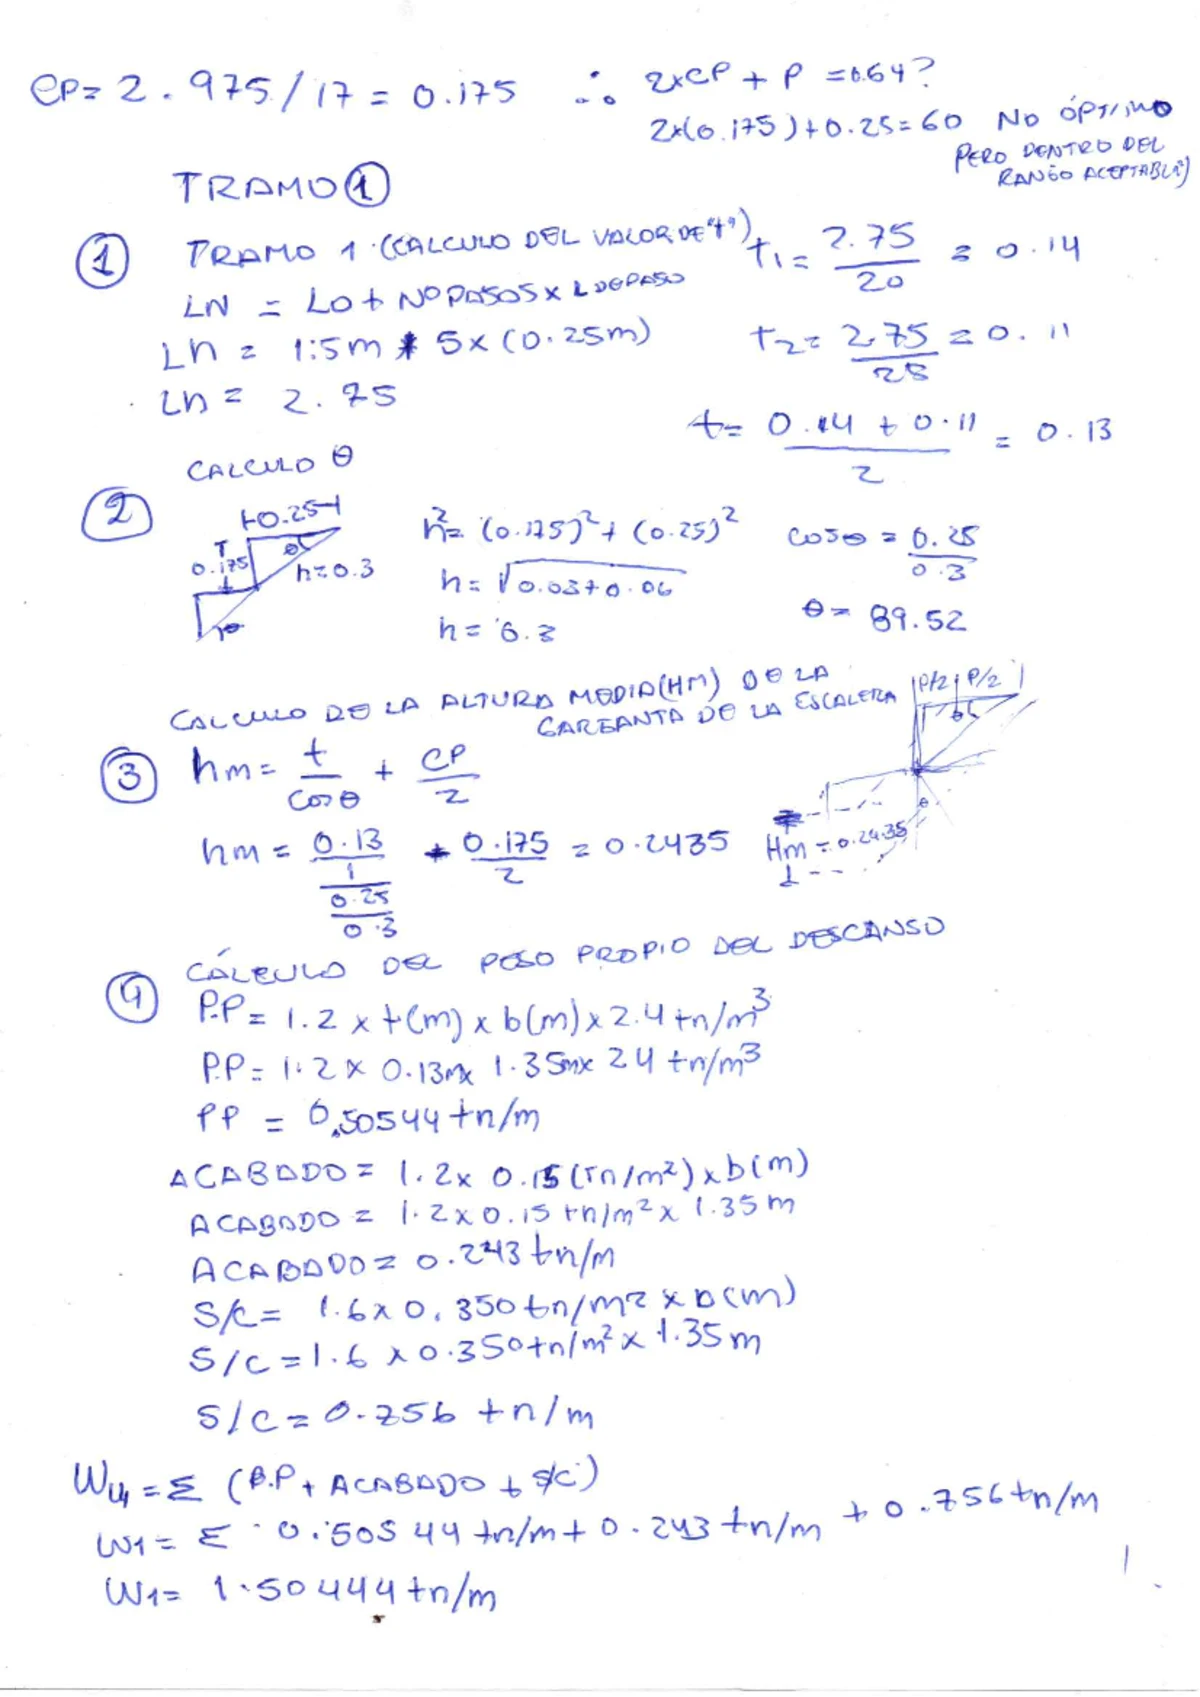 CP= 2.975/17 = 0.175 ∴ 2xCP + P = 0.64?
2x(0.175)+0.25=60 NO ÓPTIMO
PERO DENTRO DEL
RANGO ACEPTABLE)
TRAMO ①
① TRAMO 1 (CALCULO DEL VALOR DE "t") t1= 2.75/20 = 0.14
LN = LO + Nº PASOS x L DE PASO
Ln = 1.5m + 5x(0.25m) t2= 2.75/25 = 0.11
Ln = 2.75
t= (0.14 + 0.11)/2 = 0.13
CALCULO θ
②
0.25
0.175
θ
h=0.3
θ
h²= (0.175)²+(0.25)² cosθ = 0.25/0.3
h= √0.03+0.06
h= 0.3 θ= 89.52
CALCULO DE LA ALTURA MEDIA(HM) DE LA
GARGANTA DE LA ESCALERA
P/2 P/2
③ hm= t/cosθ + CP/2
hm = 0.13/(1/(0.25/0.3)) + 0.175/2 = 0.2435
θ
Hm = 0.2435
④ CÁLCULO DEL PESO PROPIO DEL DESCANSO
P.P= 1.2 x t(m) x b(m) x 2.4 tn/m³
P.P= 1.2 x 0.13m x 1.35m x 24 tn/m³
PP = 0,50544 tn/m
ACABADO= 1.2x 0.15 (Tn/m²) x b(m)
ACABADO = 1.2x0.15 tn/m² x 1.35 m
ACABADO= 0.243 tn/m
S/C= 1.6x0.350 tn/m2 x b(m)
S/C =1.6 x 0.350tn/m² x 1.35 m
S/C = 0.756 tn/m
Wu1 = Σ (P.P + ACABADO + S/C)
W1= Σ 0.50544 tn/m + 0.243 tn/m + 0.756 tn/m
W1= 1.50444 tn/m